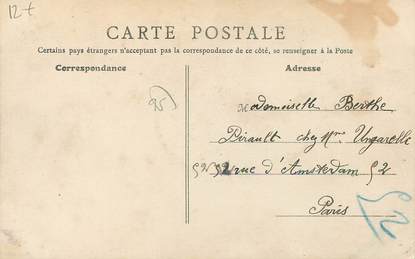 12 t
CARTE POSTALE
Certains pays étrangers n'acceptant pas la correspondance de ce côté, se renseigner à la Poste
Correspondance
Adresse
95
Mademoiselle Berthe
Pirault chez Mme Ungarelle
52 52 rue d'Amsterdam 52
Paris
52